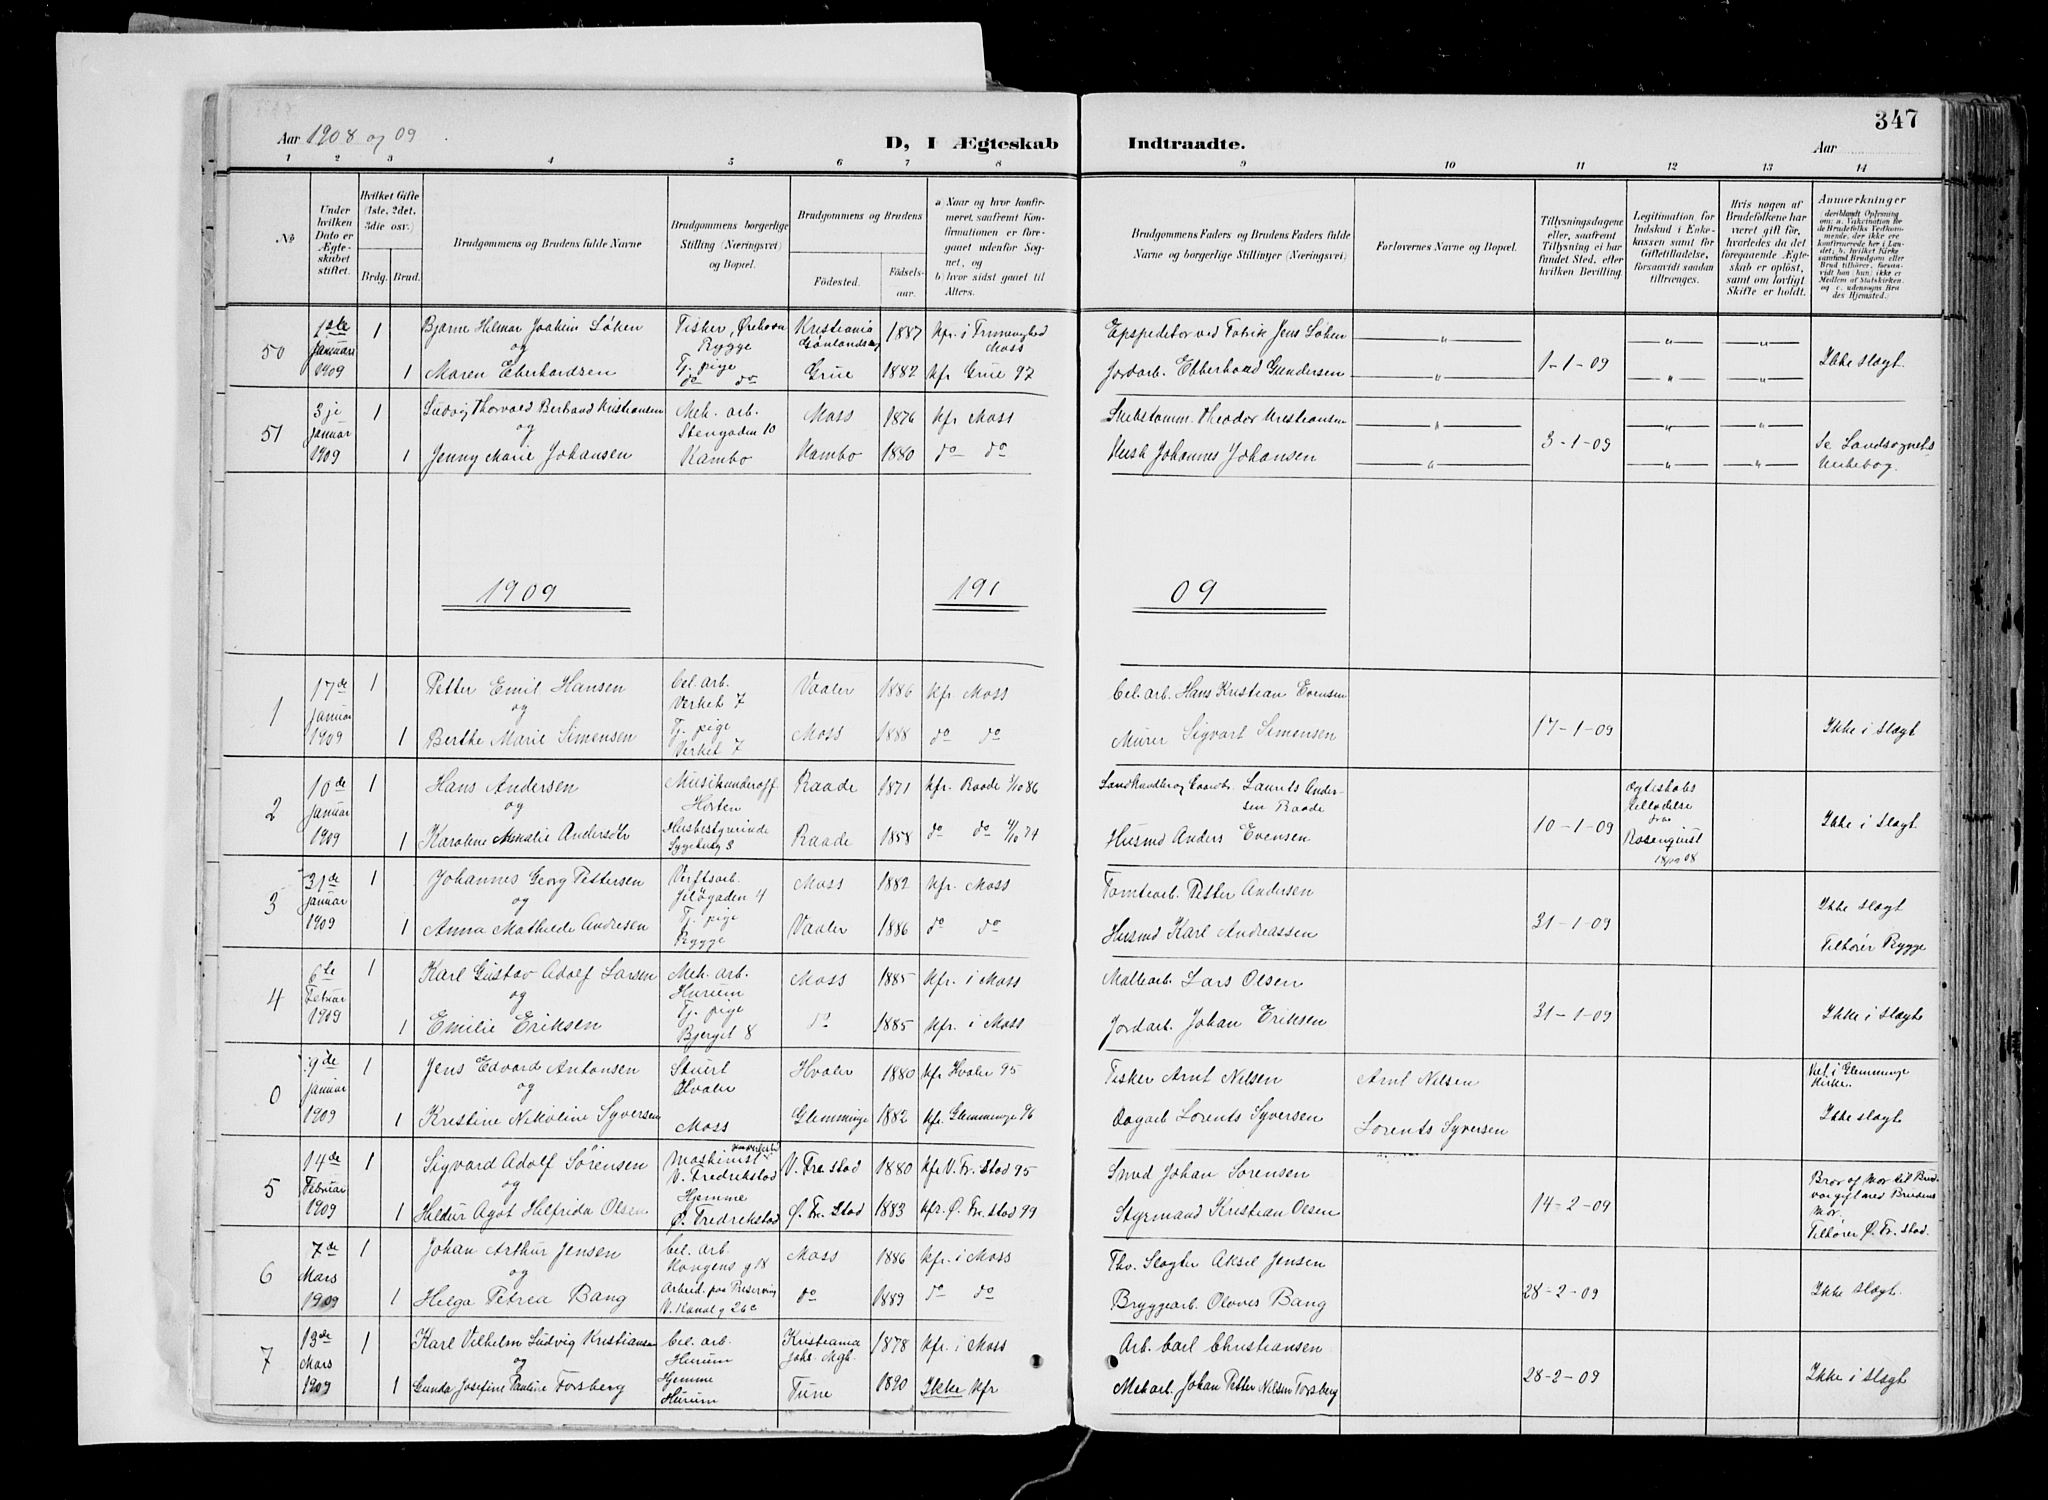 347
Aar 1908 og 09
D, I Ægteskab
Indtraadte.
Aar
1 2 3 4 5 6 7 8 9 10 11 12 13 14
No
Under hvilken Dato er Ægteskabet stiftet.
Hvilket Gifte (1ste, 2det, 3die osv.)
Brdg. Brud.
Brudgommens og Brudens fulde Navne
Brudgommens borgerlige Stilling (Næringsvei) og Bopæl.
Brudgommens og Brudens
Födested.
Födsels-aar.
a Naar og hvor konfirmeret, saafremt Konfirmationen er foregaaet udenfor Sognet, og
b) hvor sidst gaaet til Alters.
Brudgommens Faders og Brudens Faders fulde Navne og borgerlige Stillinger (Næringsvei)
Forlovernes Navne og Bopæl.
Tillysningsdagene eller, saafremt Tillysning ei har fundet Sted, efter hvilken Bevilling.
Legitimation for Indskud i Enkekassen samt for Giftetilladelse, forsaavidt saadan tiltrænges.
Hvis nogen af Brudefolkene har været gift før, hvorledes da det foregaaende Ægteskab er opløst, samt om lovligt Skifte er holdt.
Anmærkninger
50 1ste Januari 1909 1 Bjarne Hilmar Joakim Løken Fisker, Ørehavn Rygge Kristiania Grønlandsmgh 1887 Kfr. i Trinenighed Moss Expeditør ved Fabrik Jens Løken 1-1-09 Ikke Slægt.
og
1 Maren Eberhardsen Tj. pige do do Grue 1882 Kfr Grue 97 Jordarb. Ebberhard Gundersen
51 3je Januar 1909 1 Ludvig Thorvald Bertrand Kristiansen Mek. arb. Stengaden 10 Moss 1876 Kfr Moss Skibstømm. Theodor Kristiansen 3-1-09 Se Landsognets Kirkebog.
og
1 Jenny Marie Johansen Kambo Kambo 1880 do do Husm Johannes Johansen
1909 191 09
1 17de Januar 1909 1 Petter Emil Hansen Cel. arb. Verket 7 Vaaler 1886 Kfr Moss Cel. arb. Hans Kristian Evensen 17-1-09 Ikke i Slægt
og
1 Berthe Marie Simensen Tj. pige Verket 7 Moss 1888 do do Murer Sigvart Simensen
2 10de Januar 1909 1 Hans Andersen Musikunderoff. Horten Raade 1871 Kfr. Raade 3/10 86 Laurits Andersen Raade 10-1-09 Ægteskabs tilladelse fra Rosenqvist 18/12 08 Ikke i Slægt.
og
1 Karoline Amalie Andersdtr Husbestyrerinde Raade 1858 do do Husmd Anders Evensen
3 31de Januar 1909 1 Johannes Georg Pettersen Verftsarb. Jeløgaden 4 Moss 1882 Kfr. Moss Tomtearb. Petter Andersen 31-1-09 Ikke Slægt
og
1 Anna Mathilde Andresen Tj. pige Rygge Vaaler 1886 do do Husmd Karl Andreassen Tilhører Rygge
4 6te Februar 1909 1 Karl Gustav Adolf Larsen Mek. arb. Hurum Moss 1885 Kfr. i Moss Maltearb. Lars Olsen 31-1-09 Ikke i Slægt
og
1 Emilie Eriksen Tj. pige Bjerget 8 do 1885 Kfr. i Moss Jordarb. Johan Eriksen
0 9de Januar 1909 1 Jens Edvard Antonsen Stuert Hvaler Hvaler 1880 Kfr Hvaler 95 Fisker Arnt Nilsen Arnt Nilsen Viet i Glemminge Kirke.
og
1 Kristine Nikoline Syversen Moss Glemminge 1882 Kfr. Glemminge 96 Dagarb Lorents Syversen Lorents Syversen Ikke slægt
5 14de Februar 1909 1 Sigvard Adolf Sörensen Maskinist V. Fredrikstad V. Fre stad 1880 Kfr V. Fr. stad 95 Smed Johan Sörensen 14-2-09 Bror og Mor til Brud var gift med Brudens Mor.
og
1 Hildur Agot Helfrida Olsen Hjemme Ø. Fredrikstad Ø. Fr. Stad 1883 Kfr. Ø. Fr. stad 99 Styrmand Kristian Olsen Tilhører Ø. Fr. stad.
6 7de Mars 1909 1 Johan Arthur Jensen Cel. arb. Kongens g 18 Moss 1886 Kfr. i Moss Fhv. Slagter Aksel Jensen 28-2-09 Ikke Slægt.
og
1 Helga Petrea Bang Arbeid. paa Preserving V. Kanal g 26c do 1889 do do Bryggearb. Olaves Bang
7 13de Mars 1909 1 Karl Vilhelm Ludvig Kristiansen Cel. arb. Hurum Kristiania Johs. Mgh. 1878 Kfr. i Moss Arb. Carl Christiansen 28-2-09 Ikke i Slægt
og
1 Gunda Josefine Pauline Forsberg Hjemme Hurum Tune 1890 Ikke Kfr Mekarb. Johan Petter Nilsen Forsberg